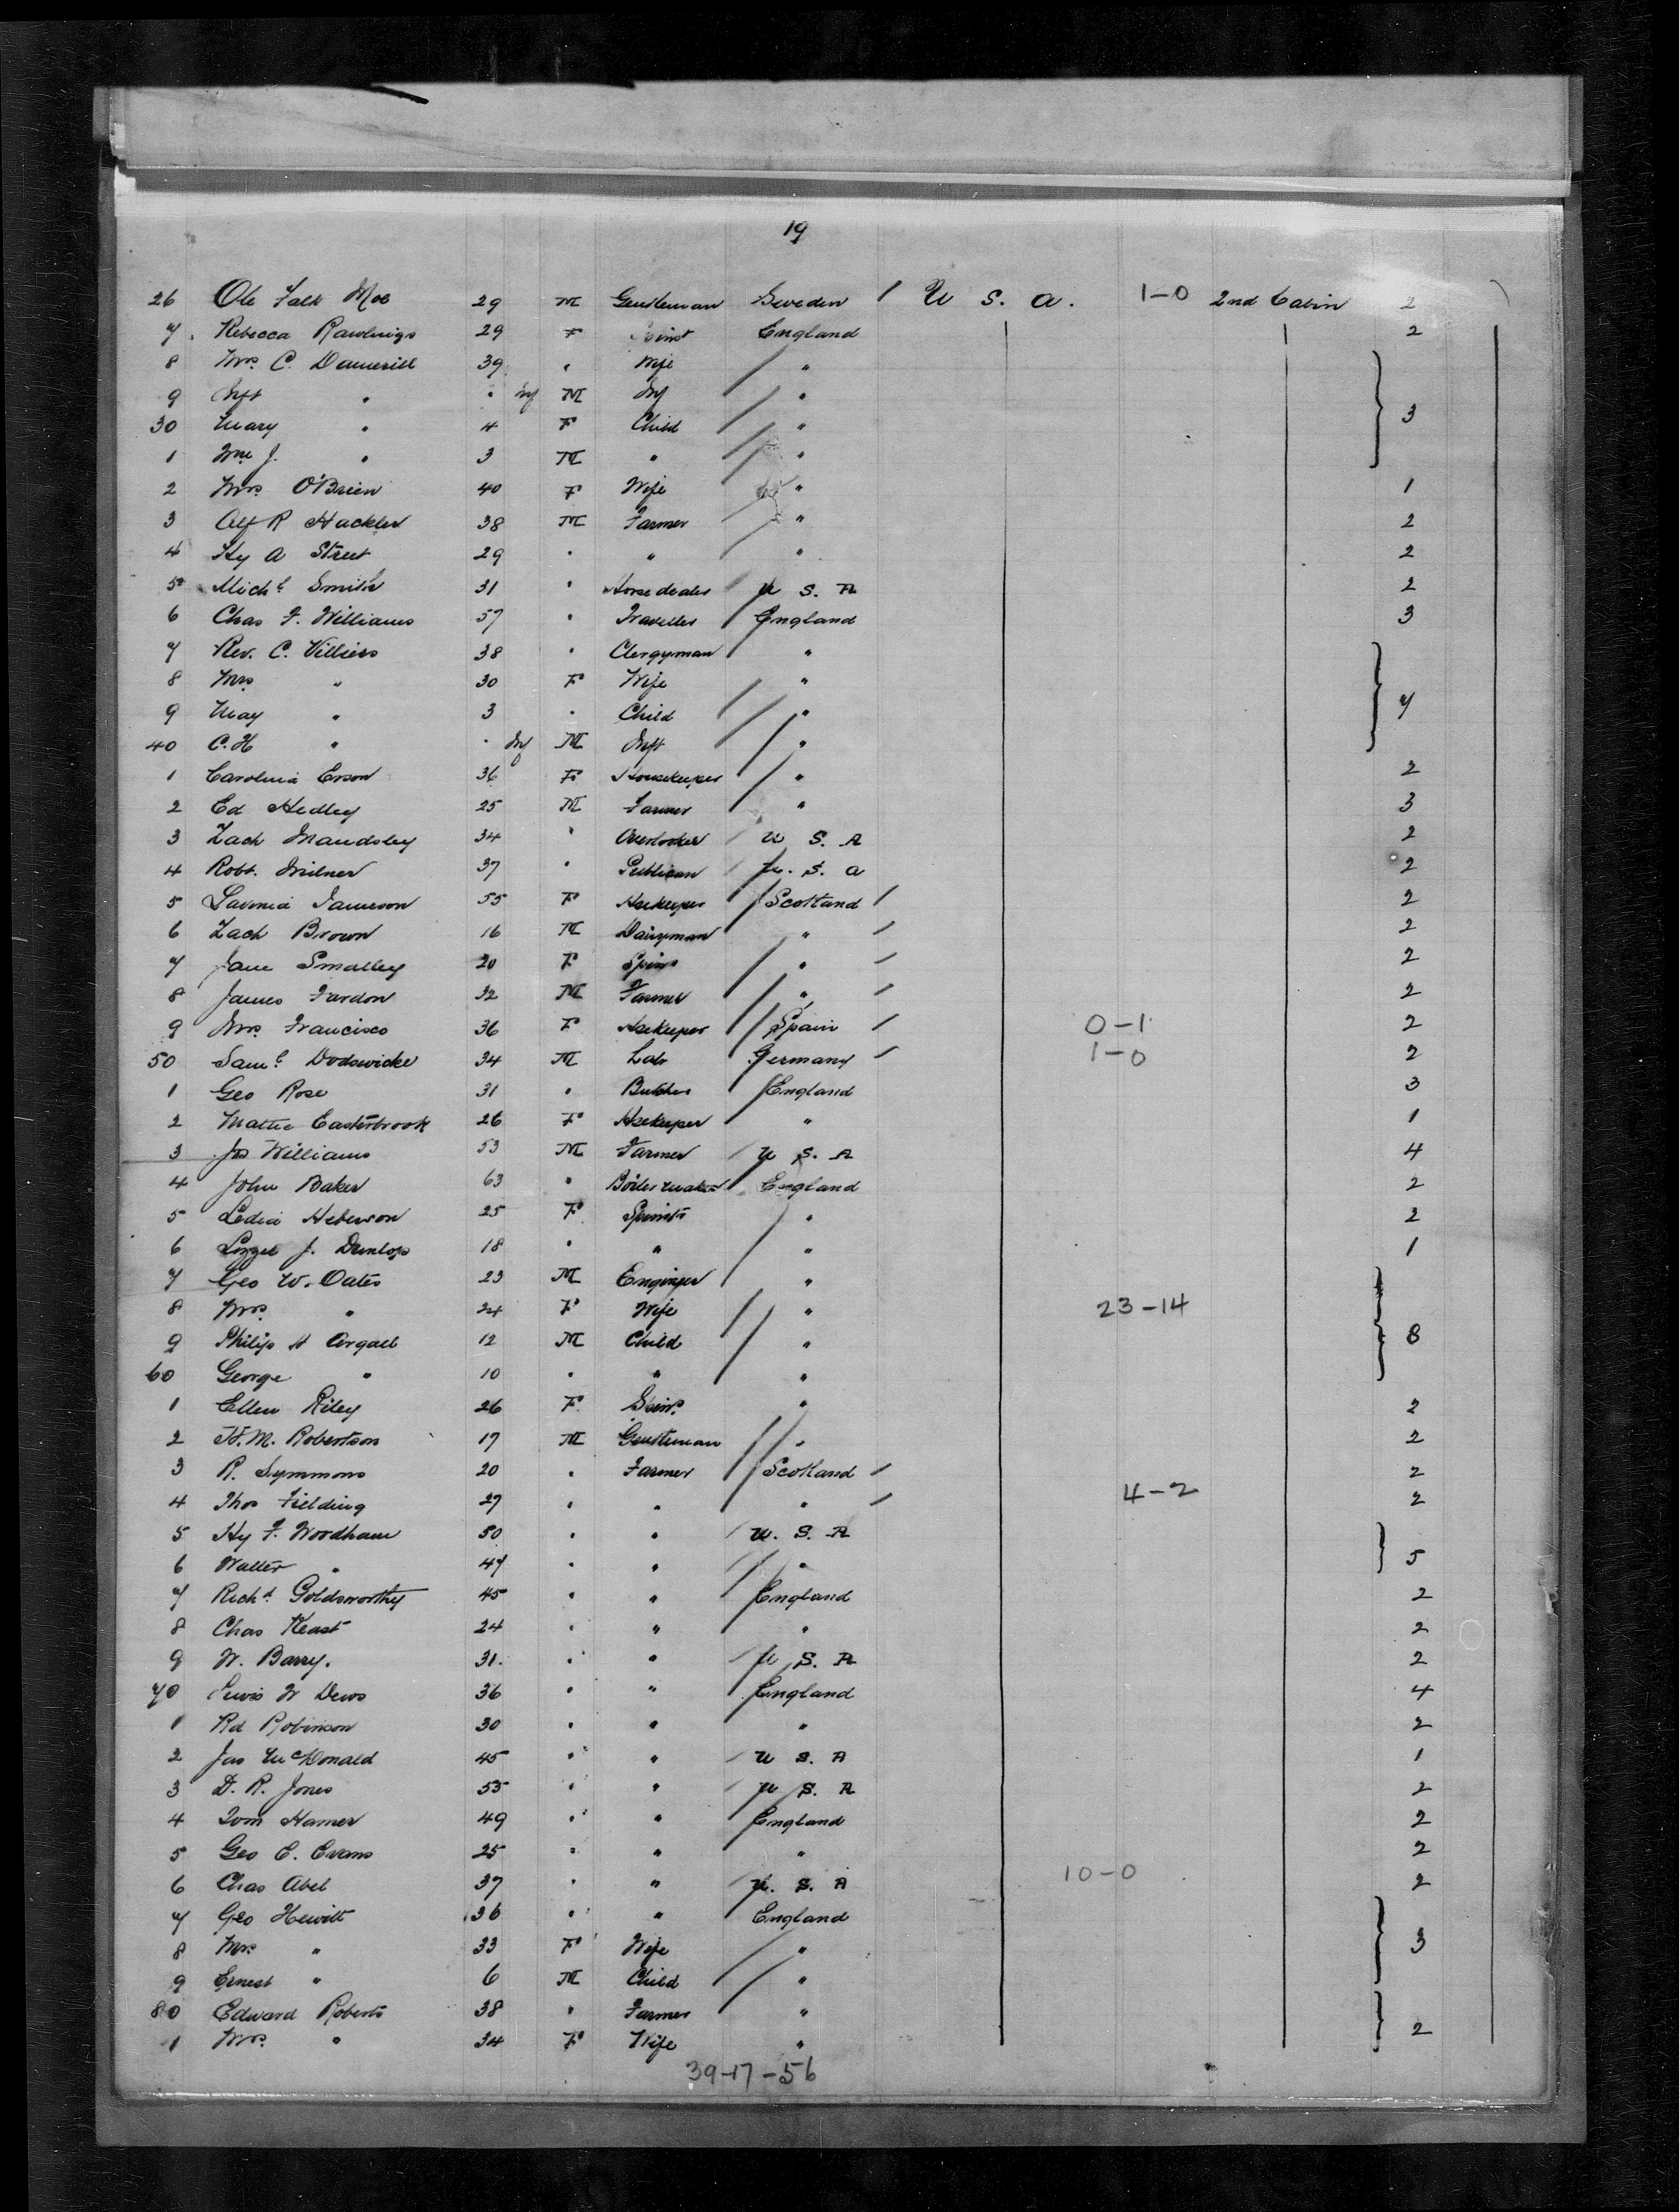 19
26 Ole Falk Moe 29 M Gentleman Sweden / U S. A. 1-0 2nd Cabin 2
7 Rebecca Rawlings 29 F Spinst England 2
8 Mrs C. Damerill 39 " Wife / "
9 Inft " " Inf M Inf / "
30 Mary " 4 F Child / " 3
1 Wm J. " 3 M " / "
2 Mrs O'Brien 40 F Wife " 1
3 Alf R Hackler 38 M Farmer / " 2
4 Hy A Street 29 " " / " 2
5 Michl Smith 31 " Horse dealer / U S. A 2
6 Chas F. Williams 57 " Traveller / England 3
7 Rev. C. Villiers 38 " Clergyman / "
8 Mrs " 30 F Wife / "
9 May " 3 " Child / " 7
40 C. H " " Inf M Inft / "
1 Carolina Erson 36 F Housekeeper / " 2
2 Ed Hedley 25 M Farmer / " 3
3 Zach Maudsley 34 " Overlooker / U S. A 2
4 Robt. Milner 37 " Publican / U. S. A 2
5 Lavinia Jameson 55 F Hsekeeper / Scotland / 2
6 Zach Brown 16 M Dairyman " / 2
7 Jane Smalley 20 F Spins / " / 2
8 James Fardon 32 M Farmer / " / 2
9 Mrs. Francisco 36 F Hsekeeper / Spain / 0-1 2
50 Saml Dodswicke 34 M Labr Germany / 1-0 2
1 Geo Rose 31 " Butcher / England 3
2 Mattie Easterbrook 26 F Hsekeeper " 1
3 Jos Williams 53 M Farmer / U S. A 4
4 John Baker 63 " Boiler maker / England 2
5 Ledia Heberson 25 F Spinstr / " 2
6 Lizzie J. Dunlop 18 " " / " 1
7 Geo W. Oates 23 M Engineer / "
8 Mrs " 24 F Wife / " 23-14
9 Philip H Argall 12 M Child / " 8
60 George " 10 " " "
1 Ellen Riley 26 F Spins. " 2
2 H. M. Robertson 17 M Gentleman / " 2
3 R. Symmons 20 " Farmer / Scotland / 2
4 Thos Fielding 27 " " " / 4-2 2
5 Hy F. Woodham 50 " " / U. S. A
6 Walter " 47 " " / " 5
7 Richd Goldsworthy 45 " " / England 2
8 Chas Keast 24 " " " 2
9 W. Barry. 31. " " / U S. A 2
70 Lewis W Dews 36 " " / England 4
1 Rd Robinson 30 " " " 2
2 Jas McDonald 45 " " / U S. A 1
3 D. R. Jones 55 " " / U S. A 2
4 Tom Hamer 49 " " / England 2
5 Geo E. Evans 25 " " " 2
6 Chas Abel 37 " " / U. S. A 10-0 2
7 Geo Hewitt 36 " " England
8 Mrs " 33 F Wife / " 3
9 Ernest " 6 M Child / "
80 Edward Roberts 38 " Farmer "
1 Mrs. " 34 F Wife " 2
39-17-56